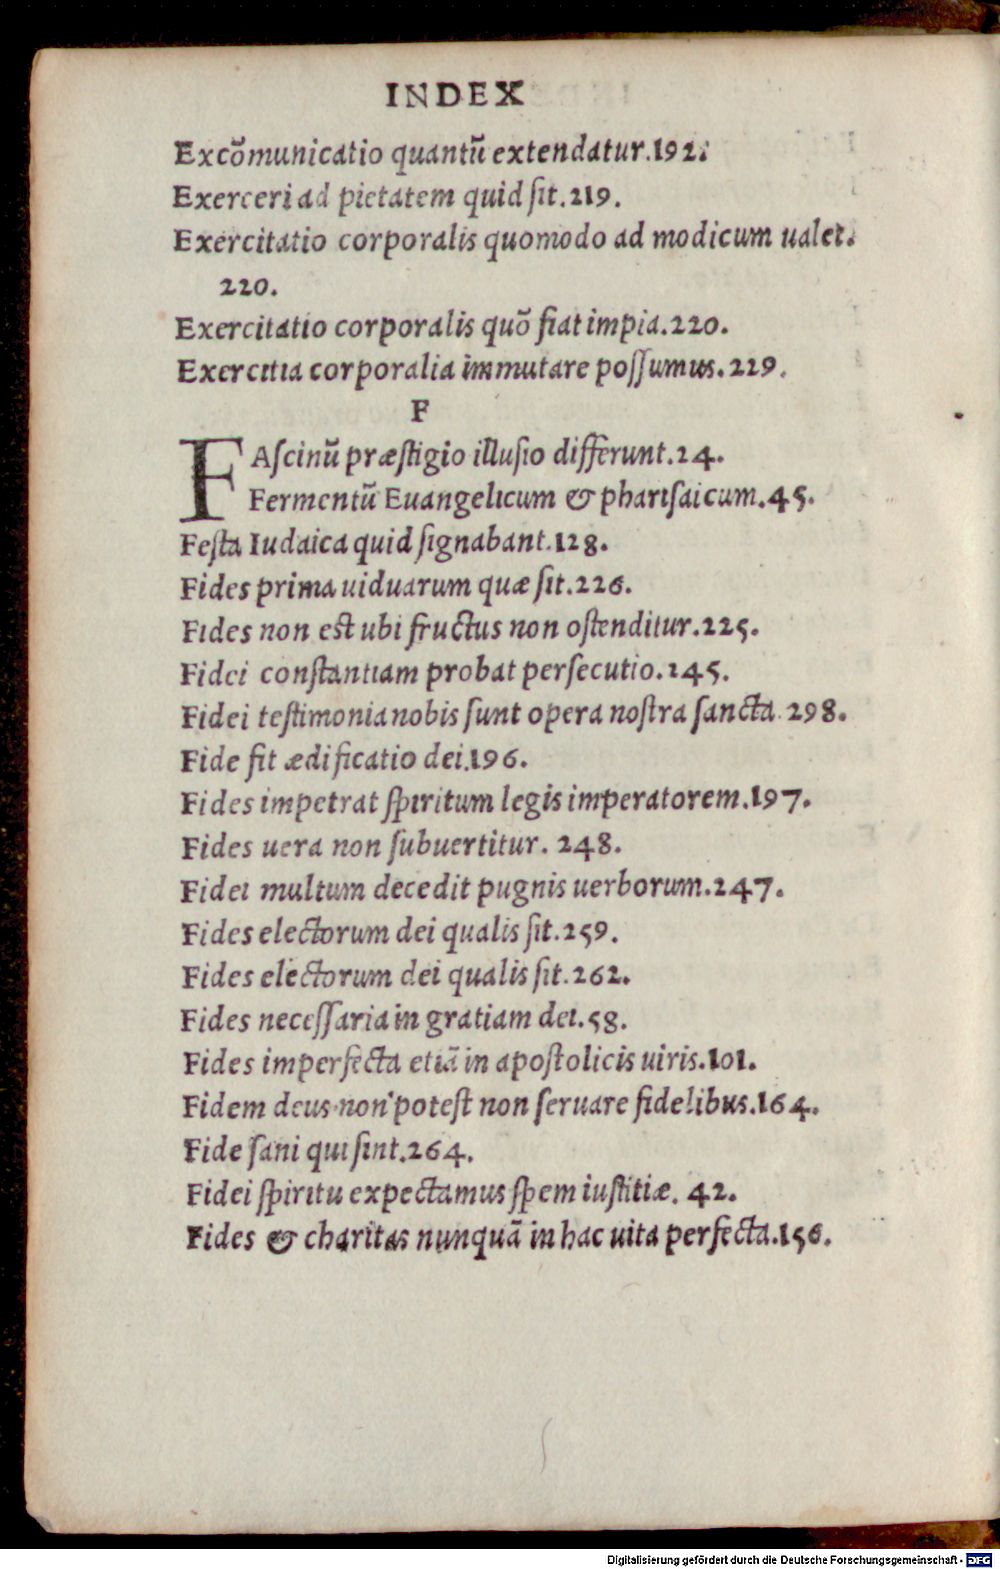 INDEX
Excõmunicatio quantũ extendatur.192.
Exerceri ad pietatem quid ſit.219.
Exercitatio corporalis quomodo ad modicum ualet.
220.
Exercitatio corporalis quõ fiat impia.220.
Exercitia corporalia immutare poſſumus.229.
F
FAſcinũ præſtigio illuſio differunt.24.
Fermentũ Euangelicum & phariſaicum.45.
Feſta Iudaica quid ſignabant.128.
Fides prima uiduarum quæ ſit.226.
Fides non est ubi fructus non oſtenditur.225.
Fidei conſtantiam probat perſecutio.245.
Fidei teſtimonia nobis ſunt opera noſtra ſancta.298.
Fide fit ædificatio dei.196.
Fides impetrat ſpiritum legis imperatorem.197.
Fides uera non ſubuertitur. 248.
Fidei multum decedit pugnis uerborum.247.
Fides electorum dei qualis ſit.259.
Fides electorum dei qualis ſit.262.
Fides neceſſaria in gratiam dei.58.
Fides imperfecta etiã in apoſtolicis uiris.101.
Fidem deus non poteſt non ſeruare fidelibus.164.
Fide ſani qui ſint.264.
Fidei ſpiritu expectamus ſpem iuſtitiæ. 42.
Fides & charitas nunquã in hac uita perfecta.156.
Digitalisierung gefördert durch die Deutsche Forschungsgemeinschaft - DFG